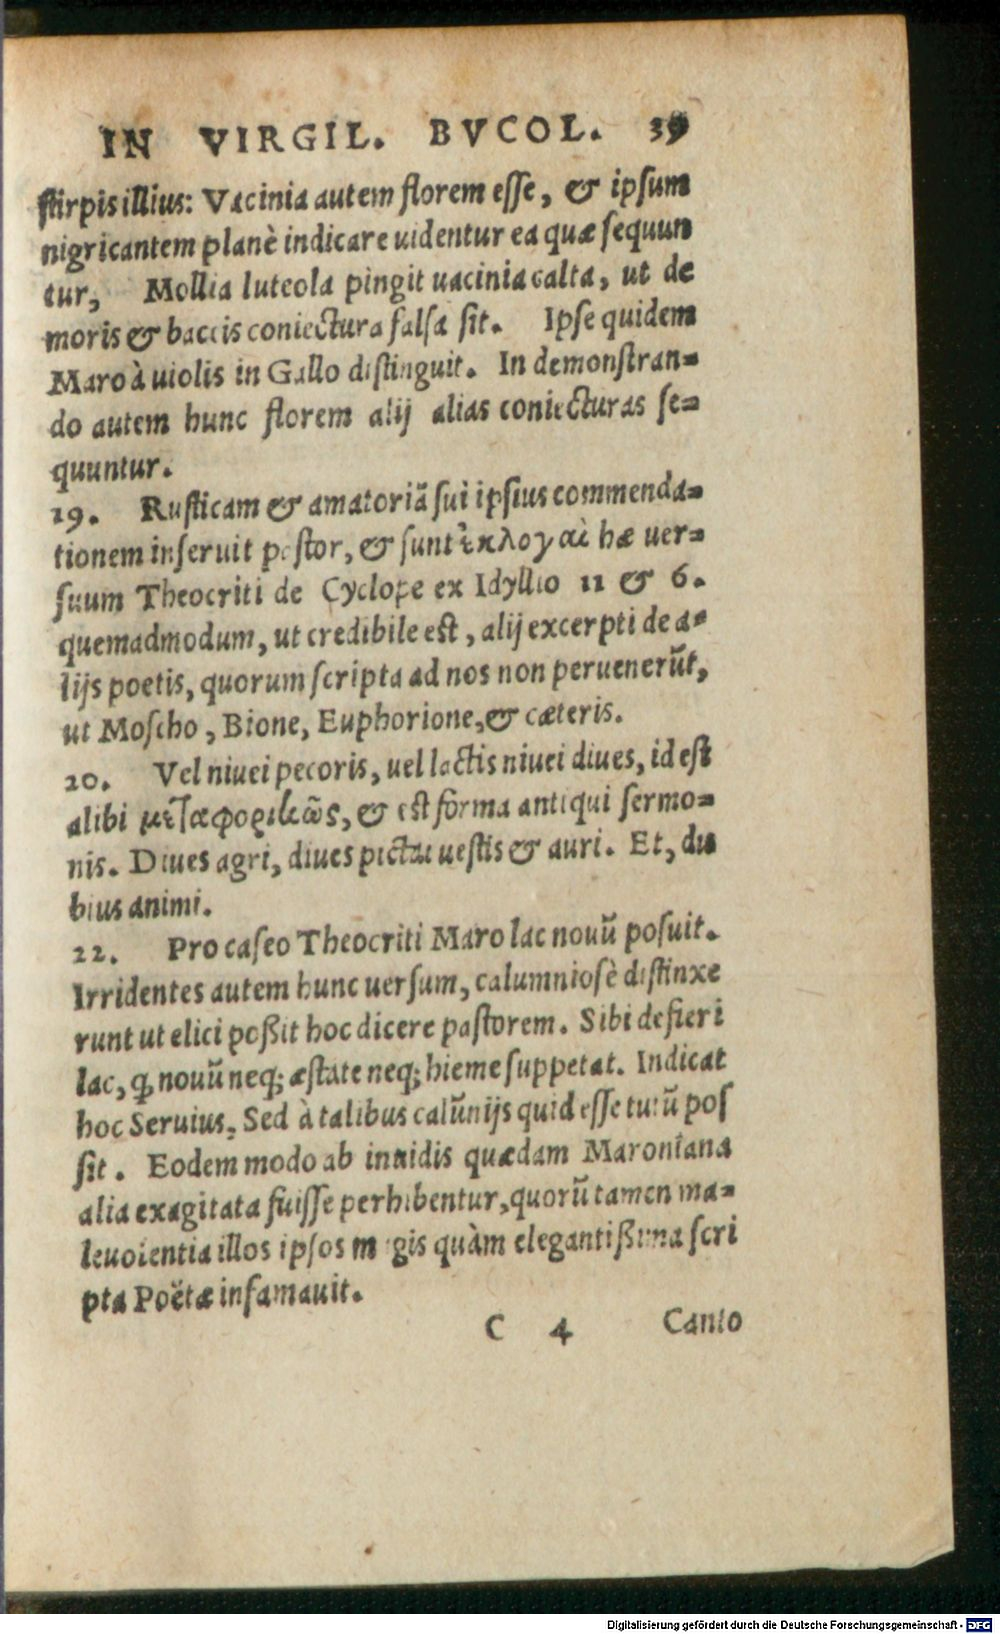 IN VIRGIL. BVCOL. 39
stirpis illius: Vacinia autem florem esse, & ipsum
nigricantem planè indicare uidentur ea quæ sequun
tur, Mollia luteola pingit uacinia calta, ut de
moris & baccis coniectura falsa sit. Ipse quidem
Maro à uiolis in Gallo distinguit. In demonstran=
do autem hunc florem alij alias coniecturas se=
quuntur.
19. Rusticam & amatoriã sui ipsius commenda=
tionem inseruit pastor, & sunt ἐκλογαὶ hæ uer=
suum Theocriti de Cyclope ex Idyllio 11 & 6.
quemadmodum, ut credibile est, alij excerpti de a=
lijs poetis, quorum scripta ad nos non peruenerũt,
ut Moscho, Bione, Euphorione, & cæteris.
20. Vel niuei pecoris, uel lactis niuei diues, id est
alibi μεταφορικῶς, & est forma antiqui sermo=
nis. Diues agri, diues pictai uestis & auri. Et, du
bius animi.
22. Pro caseo Theocriti Maro lac nouũ posuit.
Irridentes autem hunc uersum, calumniosè distinxe
runt ut elici poßit hoc dicere pastorem. Sibi defieri
lac, ꝙ nouũ neq; æstate neq; hieme suppetat. Indicat
hoc Seruius. Sed à talibus calũnijs quid esse tutũ pos
sit. Eodem modo ab inuidis quædam Maroniana
alia exagitata fuisse perhibentur, quorũ tamen ma=
leuolentia illos ipsos magis quàm elegantißima scri
pta Poëtæ infamauit.
C 4 Canto
Digitalisierung gefördert durch die Deutsche Forschungsgemeinschaft - DFG